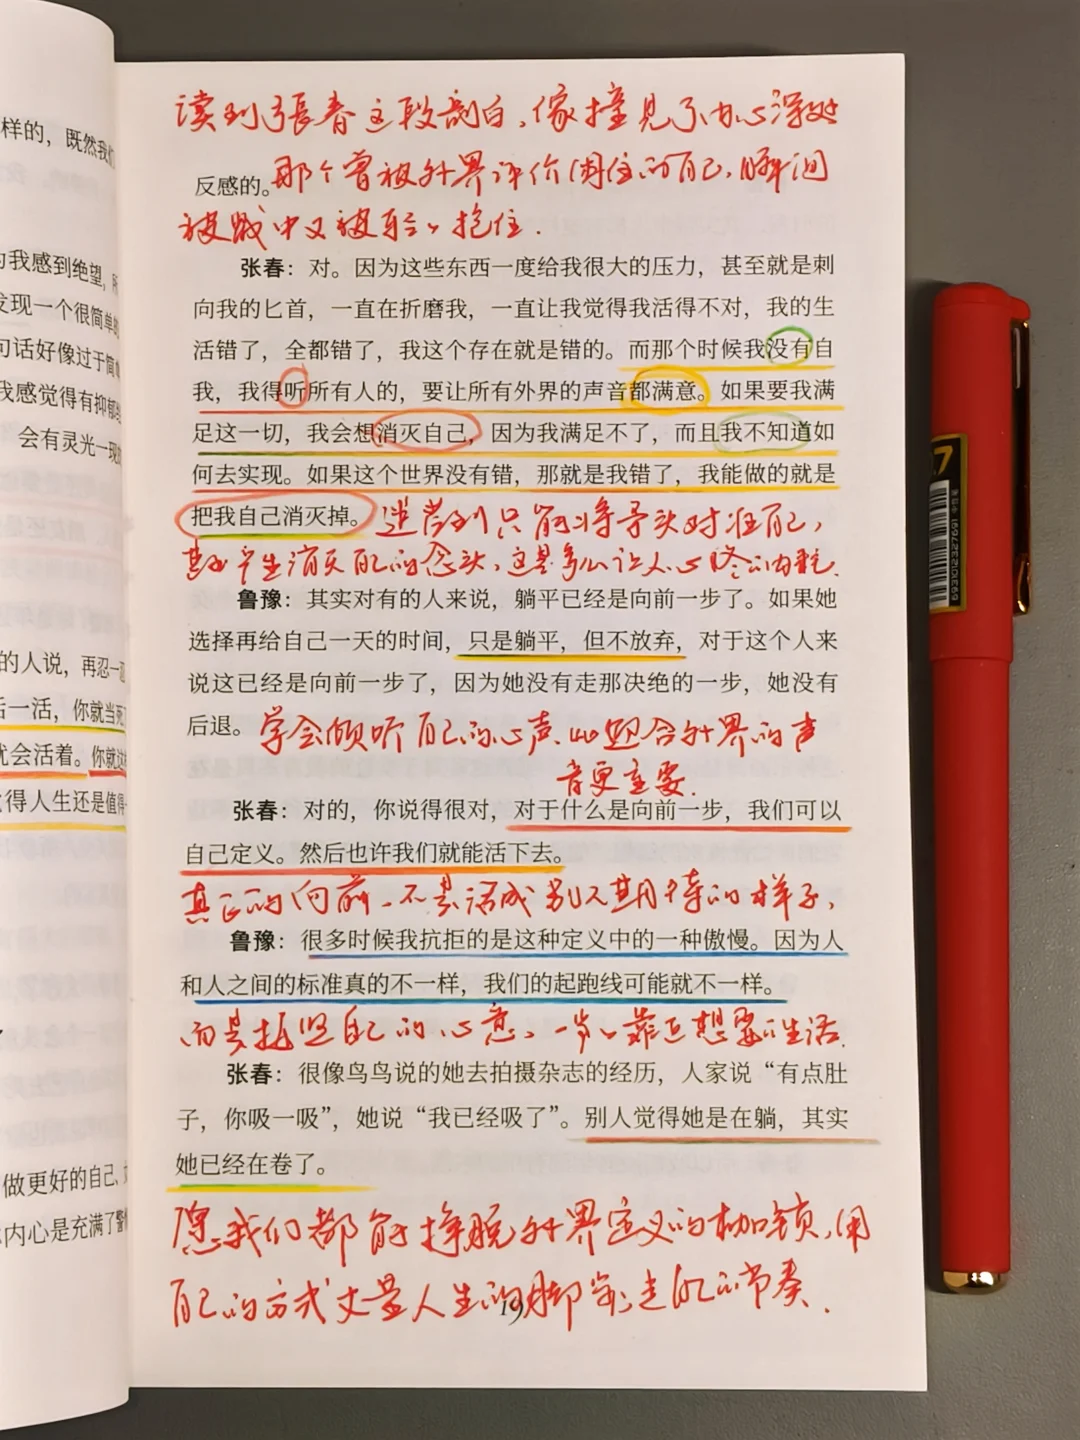 样的，既然我们
为我感到绝望，所
发现一个很简单的
句话好像过于简单
我感觉得有抑郁
会有灵光一现
的人说，再忍一
活一活，你就当死
就会活着。你就这
得人生还是值得
做更好的自己、
内心是充满了警
读到張春这段剖白，像撞见了内心深处
反感的。那个曾被外界评价困住的自己，瞬间
被戳中又被轻轻抱住.
张春：对。因为这些东西一度给我很大的压力，甚至就是刺
向我的匕首，一直在折磨我，一直让我觉得我活得不对，我的生
活错了，全都错了，我这个存在就是错的。而那个时候我没有自
我，我得听所有人的，要让所有外界的声音都满意。如果要我满
足这一切，我会想消灭自己，因为我满足不了，而且我不知道如
何去实现。如果这个世界没有错，那就是我错了，我能做的就是
把我自己消灭掉。迷茫到只能将矛头对准自己，
甚至产生消灭自己的念头，这是多么让人心疼的内耗.
鲁豫：其实对有的人来说，躺平已经是向前一步了。如果她
选择再给自己一天的时间，只是躺平，但不放弃，对于这个人来
说这已经是向前一步了，因为她没有走那决绝的一步，她没有
后退。学会倾听自己的心声，比迎合外界的声
音更重要.
张春：对的，你说得很对，对于什么是向前一步，我们可以
自己定义。然后也许我们就能活下去。
真正的向前，不是活成别人期待的样子，
鲁豫：很多时候我抗拒的是这种定义中的一种傲慢。因为人
和人之间的标准真的不一样，我们的起跑线可能就不一样。
而是按照自己的心意，一步步靠近想要的生活.
张春：很像鸟鸟说的她去拍摄杂志的经历，人家说“有点肚
子，你吸一吸”，她说“我已经吸了”。别人觉得她是在躺，其实
她已经在卷了。
愿我们都能挣脱外界定义的枷锁，用
自己的方式丈量人生的脚步，走自己的节奏.
19
.7
6931023276591